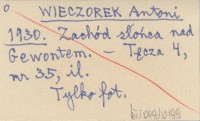 WIECZOREK Antoni
1930. Zachód słońca nad
Gewontem. – Tęcza 4,
nr 35, il.
Tylko fot.